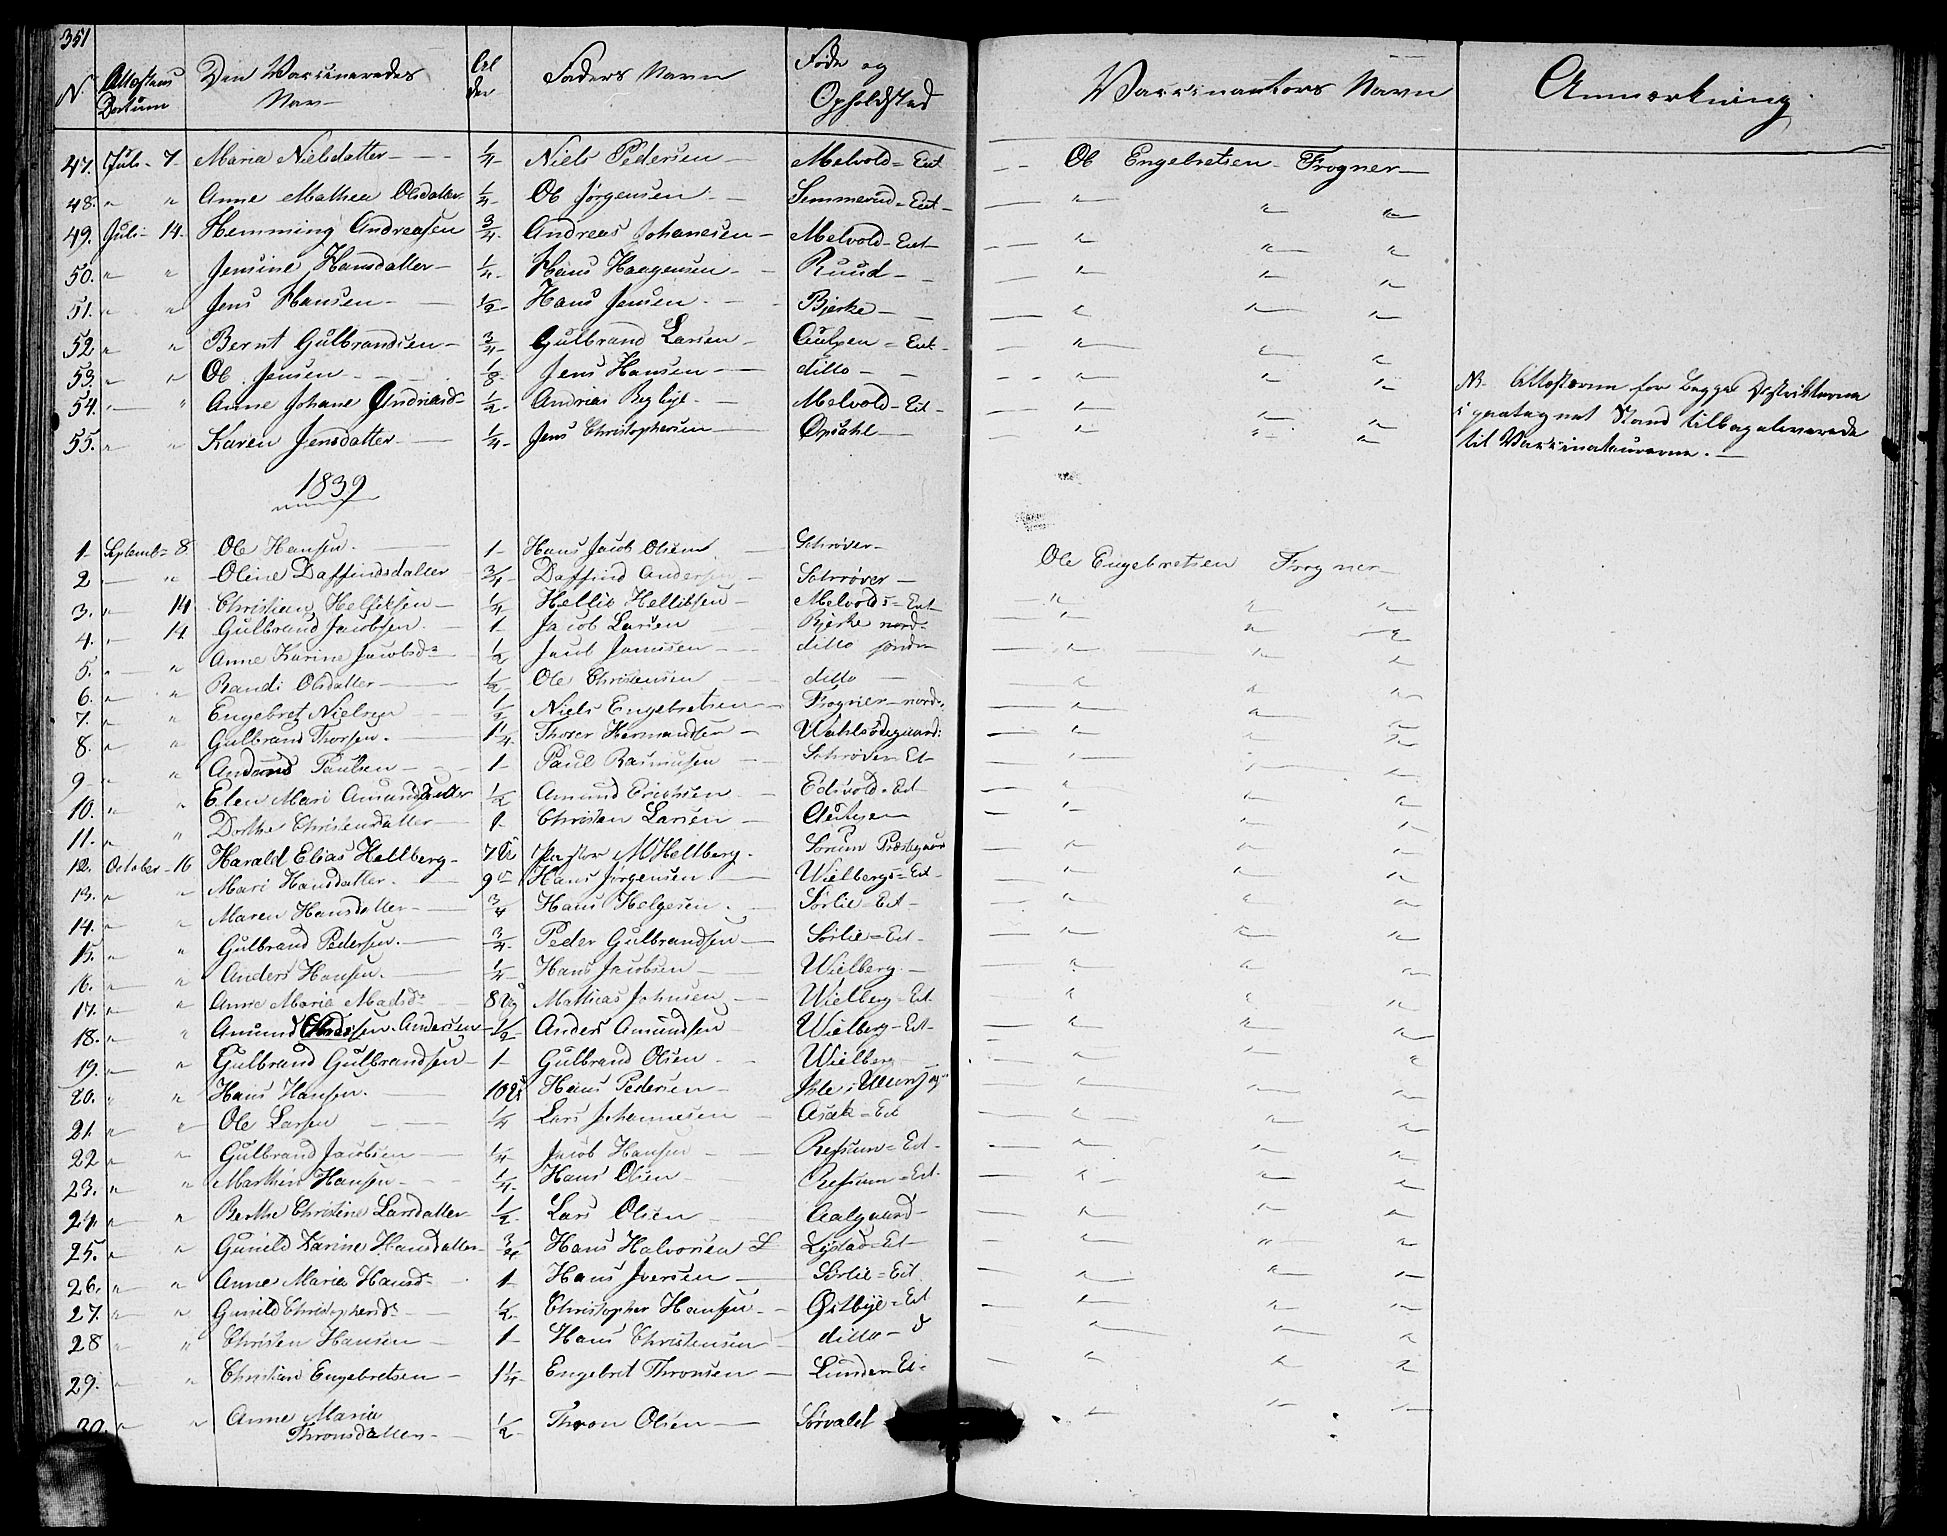 351
N Attestens Datum Den Vaccineredes Navn Alder Faders Navn Føde og Opholdsted Vaccinantors Navn Anmærkning
47. Juli - 7 - Maria Nielsdatter - 1/4 Niels Pedersen - Melvold = Eit - Ole Engebretsen - Frogner -
48. " " Anne Mathea Olsdatter 1/4 Ole Jørgensen - Semmerud = Eit - " " "
49. Juli - 14. Hemming Andreasen 3/4 Andreas Johanesen - Melvold - Eit - " " "
50. " " Jensine Hansdatter - 1/4 Hans Haagensen - Ruud - " " "
51. " " Jens Hansen - 1/2 Hans Jensen - Bjerke - " " "
52 " " Bernt Gulbrandsen - 3/4 Gulbrand Larsen - Eit - " " "
53. " " Ole Jensen - 1/8 Jens Hansen - ditto - " " "
54. " " Anne Johane Andreasd: 1/2 Andreas Begbye - Melvold - Eit - " " "
55. " " Karen Jensdatter 1/4 Jens Christophersen - Opsahl - " " "
NB. Attesterne for begge Distrikterne
i geatagnet Stand tilbageleverede
til Vaccinateurerne. -
1839
1 - Septemb = 8 Ole Hansen. 1 - Hans Jacob Olsen - Schrøver - Ole Engebretsen Frogner -
2 - " Oline Daffindsdatter 3/4 Daffind Andersen - Schrøver -
3. " 14 Christian Hellitsen - 1/4 Hellic Hellitsen - Melvolds = Eit " " "
4. - 14 Gulbrand Jacobsen. 1 - Jacob Larsen Bjerke nord. " " "
5. - " Anne Karine Jacobsd: 1/2 Jacob Jansen - ditto søndre " " "
6. " " Randi Olsdatter - 1/2 Ole Christensen ditto - " " "
7. " " Engebret Nielsen - Niels Engebretsen - Frogner - nord. " " "
8. " " Gulbrand Thorsen. - 1 1/4 Thorer Hermandsen - " " "
9 " " Paulsen - 1 - Paul Rasmusen - Schrøver Et - " " "
10. " " Elen Mari Amundsdatter 1/2 Amund Erichsen - Edsvold = Eit " " "
11. " " Dorthe Christensdatter - Christen Larsen - " " "
12. October - 16 Harald Elias Hellberg - 7 Pastor M Hellberg. Sørum Præstegaard " " "
13. " " Mari Hansdatter. 9 " Hans Jørgensen. - Wielbergs = Eit - " " "
14. " " Maren Hansdatter - 3/4 Hans Helgesen. Sørlie = Eit - " " "
15. " " Gulbrand Pedersen. - 3/4 Peder Gulbrandsen - Sørlie = Eit - " " "
16. - " Anders Hansen. - 1/4 Hans Jacobsen - Wielberg. - " " "
17. " " Anne Marie Madsd: 8 Mathias Johnsen - Wielberg = Eit. " " "
18. " " Amund Andersen 1/2 Anders Amundsen Wielberg - Eit - " " "
19. - " Gulbrand Gulbrandsen - 1 - Gulbrand Olsen - Wielberg " " "
20. " " Hans Hansen. - 10 Hans Pedersen - " " "
21. " " Ole Larsen - 1/4 Lars Johannesen - Asak = Eit " " "
22 " " Gulbrand Jacobsen - 1/4 Jacob Hansen - Refsum = Eit - " " "
23. " " Marthin Hansen - 1/4 Hans Olsen - Refsum = Eit. " " "
24. " " Berthe Christine Larsdatter 1/2 Lars Olsen - Aalgaard - " " "
25. " " Gunild Karine Hansdatter - 3/4 Hans Halvorsen Lystad = Et - " " "
26. " " Anne Marie Hansd: - 1 - Hans Iversen - Sørlie = Eit " " "
27. " " Gunild Christophersd: - 1/2 Christopher Hansen - Østbye = Eit " " "
28 " " Christen Hansen - 1 - Hans Christensen ditto - " " "
29. " " Christian Engebretsen - 1 1/4 Engebret Thronsen - Lunder Ei - " " "
30. " " Anne Maria 1/2 Thron Olsen - " " "
Thronsdatter -